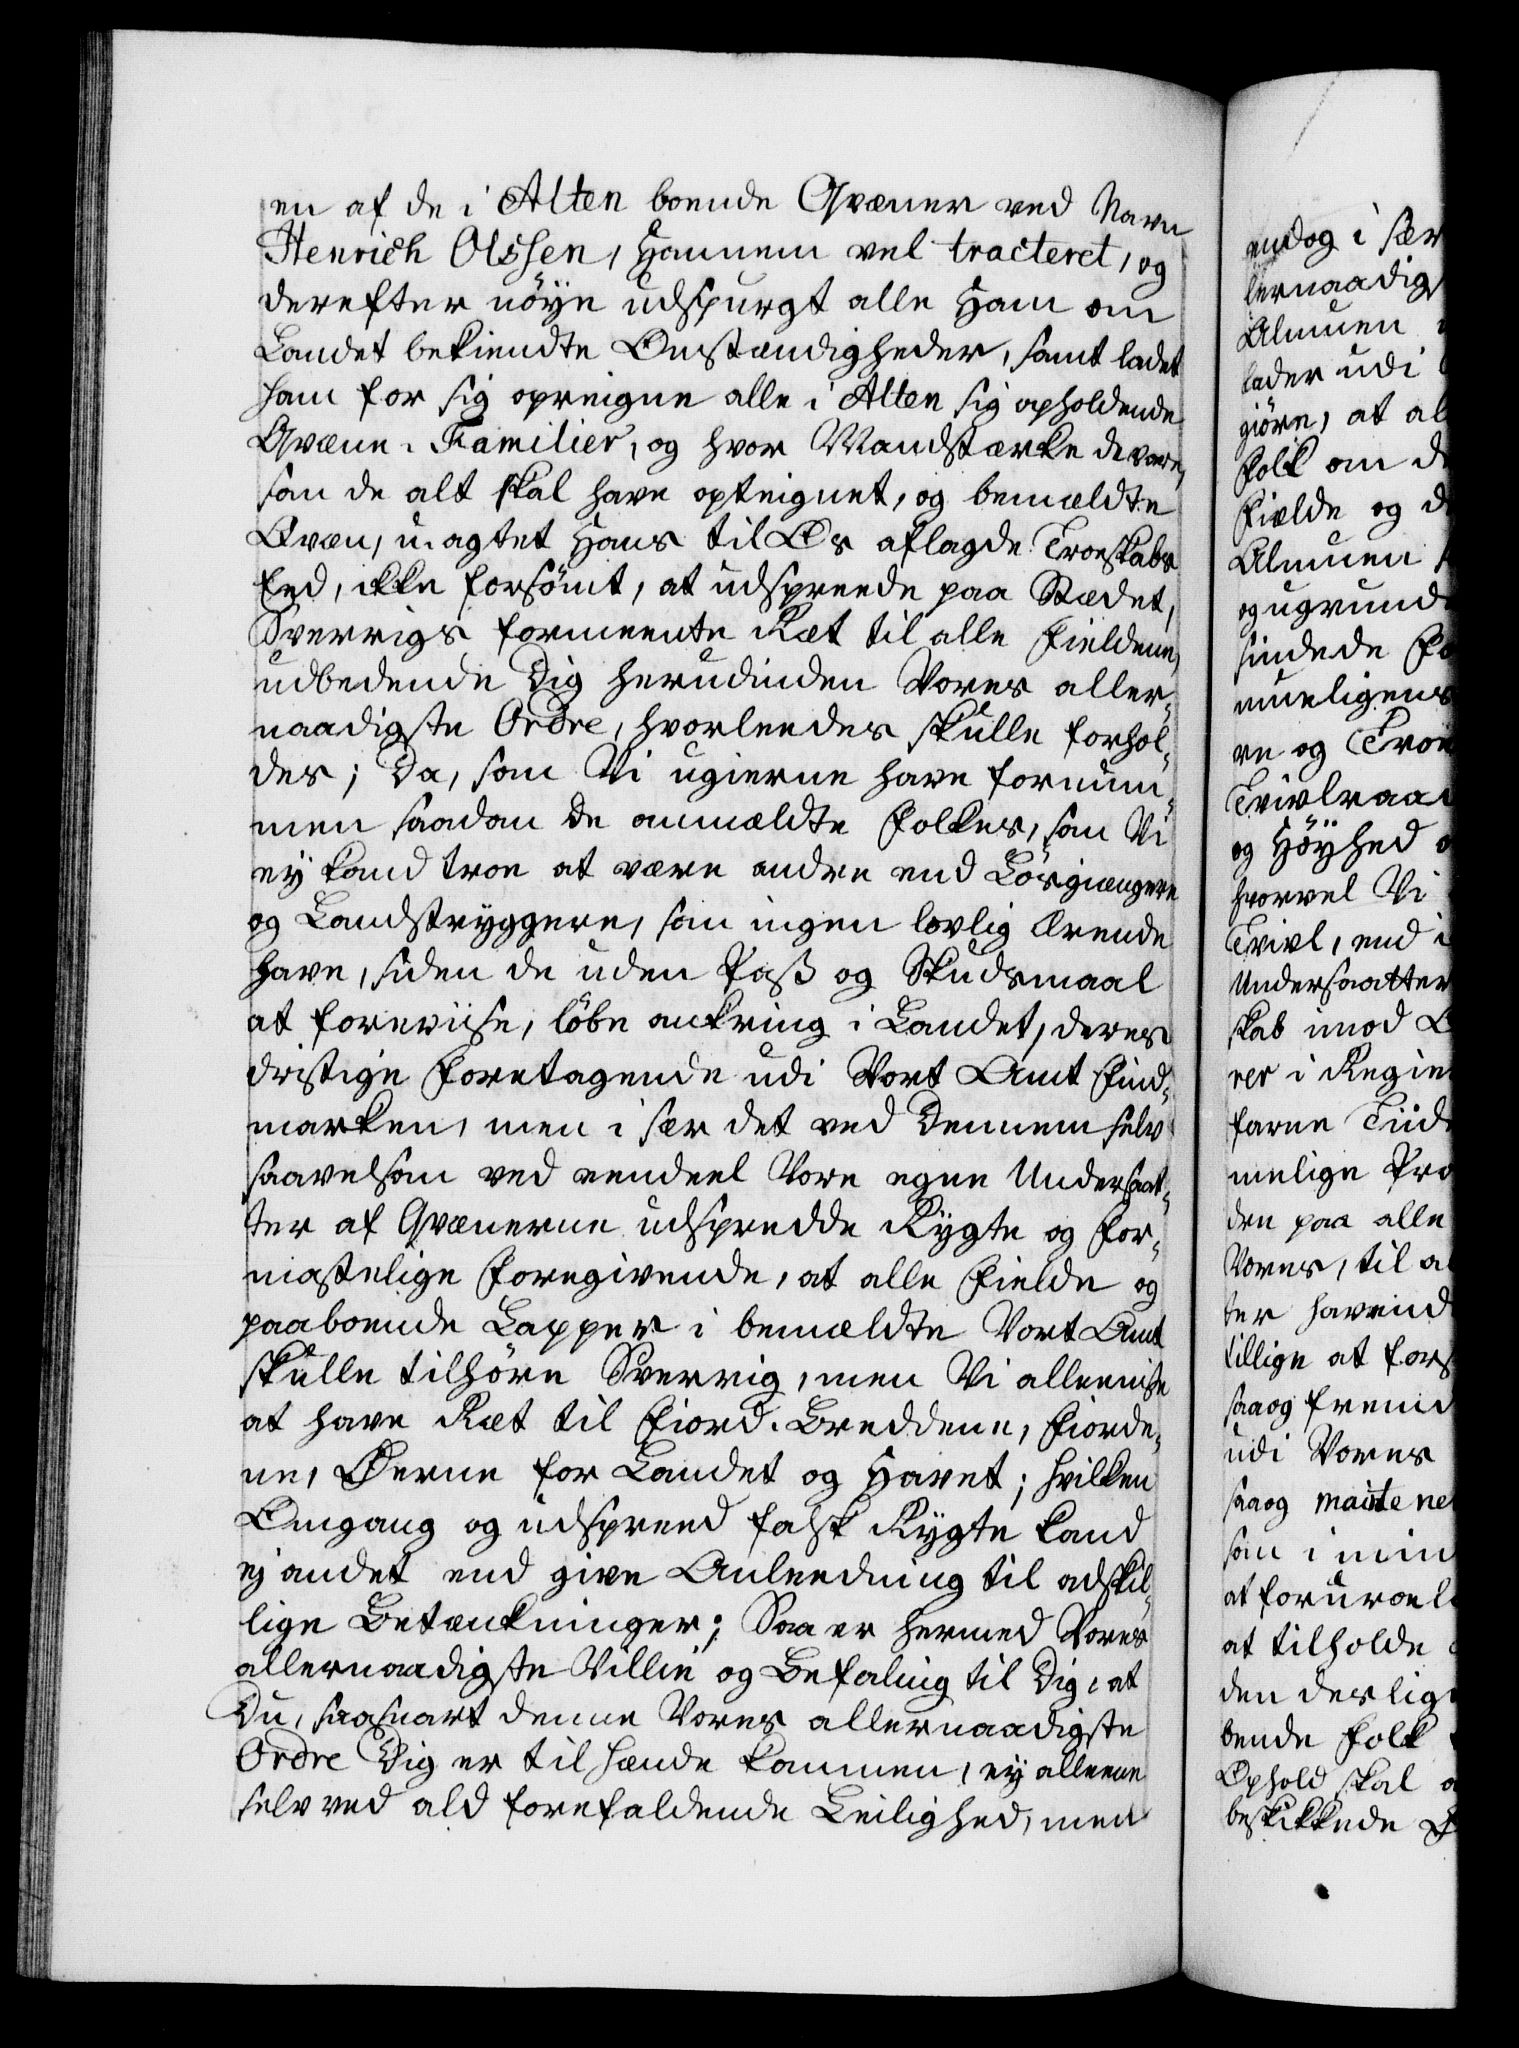 en af de i Alten boende Qvæner ved Navn
Henrich Olssen, Hannem vel tracteret, og
derefter nöye udspurgt alle Ham om
Landet bekiendte Omstændigheder, samt ladet
ham for sig opreigne alle i Alten sig opholdende
Qvæne-Familier, og hvor Mandstærke de vare,
som de alt skal have opteignet, og bemældte
Qvæn, u-agtet Hans til Os aflagde Troeskabs
Eed, ikke forsömt, at udspreede paa Stædet,
Sverrigs formeente Ræt til alle Fieldene,
udbedende Dig herudinden Vores aller-
naadigste Ordre, hvorleedes skulle forhol-
des; Da, som Vi ugierne have fornum-
men saadan de anmældte Folkes, som Vi
ey kand troe at være andre end Lösgiængere
og Landstryggere, som ingen lovlig Ærende
have, siden de uden Pass og Skudsmaal
at foreviise, löbe omkring i Landet, deres
dristige Foretagende udi Vort Amt Find-
marken, men i sær det ved Dennem selv
saavelsom ved eendeel Vore egne Undersaat-
ter af Qvænerne udspredde Rygte og For-
mastelige Foregivende, at alle Fielde og
paaboende Lapper i bemældte Vort Amt
skulle tilhöre Sverrig, men Vi alleeniste
at have Ræt til Fiord-Breddene, Fiorde-
ne, Öerne for Landet og Havet; hvilken
Omgang og udspreed falsk Rygte kand
ej andet end give Anleedning til adskil-
lige Betænkninger; Saa er hermed Vores
allernaadigste Villie og Befaling til Dig, at
Du, saasnart denne Vores allernaadigste
Ordre Dig er til hænde kommen, ey alleene
selv ved ald forefaldende Leilighed, men
endog i sær
lernaadig
Almuen
lader udi
giöre, at al
Folk om de
Fielde og d
Almuen
og ugrund
sindede Fo
mueligens
re og Troe
Tvivlraad
og Höyhed
hvorvel Vi
Tvivl, end i
Undersaatter
skab imod O
rer i Regie
farne Tiid
melige Pro
den paa alle
Vores, til al
ter havend
tillige at fors
saa og fremd
udi Vores
saa og maintene
som i min
at foruroel
at tilholde
den deslig
bende Folk
Ophold skal
beskikkede